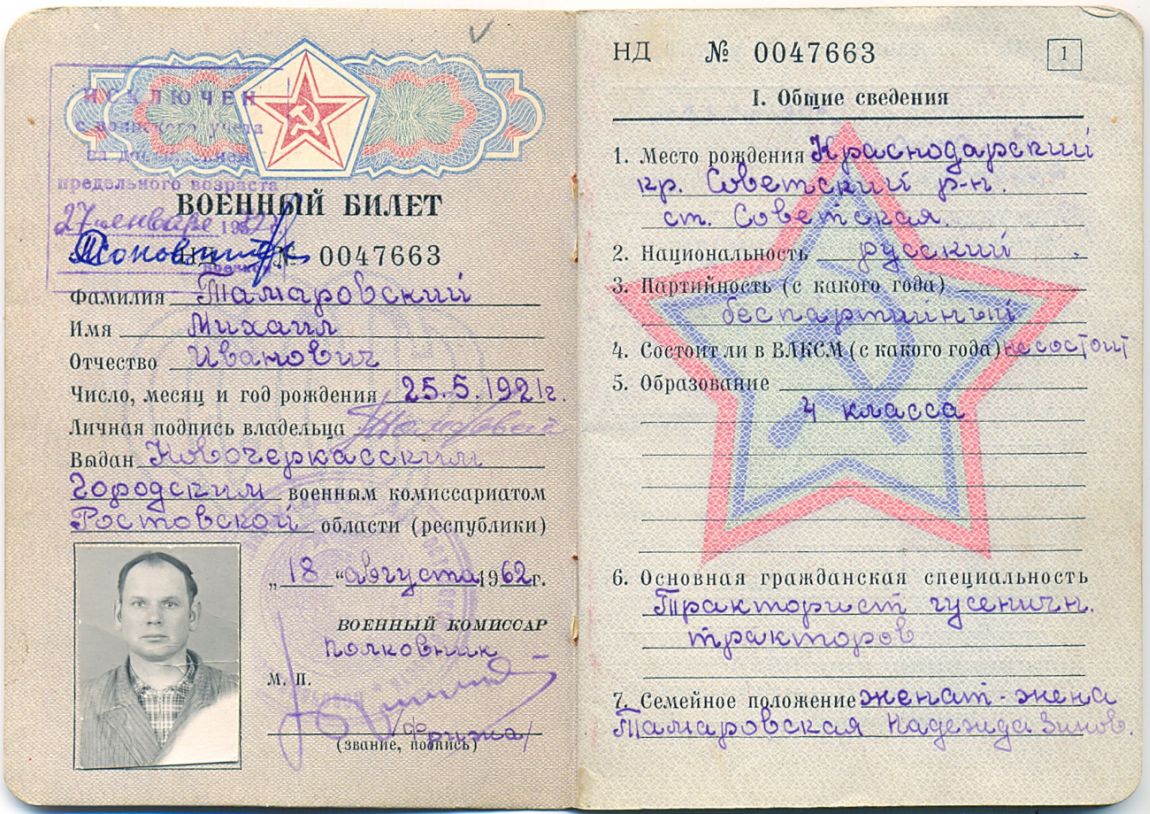 ИСКЛЮЧЕН
с воинского учета
по достижении
предельного возраста
27 января 19
ВОЕННЫЙ БИЛЕТ
№ 0047663
Фамилия Тамаровский
Имя Михаил
Отчество Иванович
Число, месяц и год рождения 25.5.1921г.
Личная подпись владельца
Выдан Новочеркасским
Городским военным комиссариатом
Ростовской области (республики)
„18“ августа 1962г.
ВОЕННЫЙ КОМИССАР
полковник
М. П.
(звание, подпись)
НД № 0047663
1
I. Общие сведения
1. Место рождения Краснодарский
кр. Советский р-н.
ст. Советская.
2. Национальность русский
3. Партийность (с какого года)
беспартийный
4. Состоит ли в ВЛКСМ (с какого года) не состоит
5. Образование
4 класса
6. Основная гражданская специальность
Тракторист гусеничн.
тракторов
7. Семейное положение женат - жена
Тамаровская Надежда Зинов.